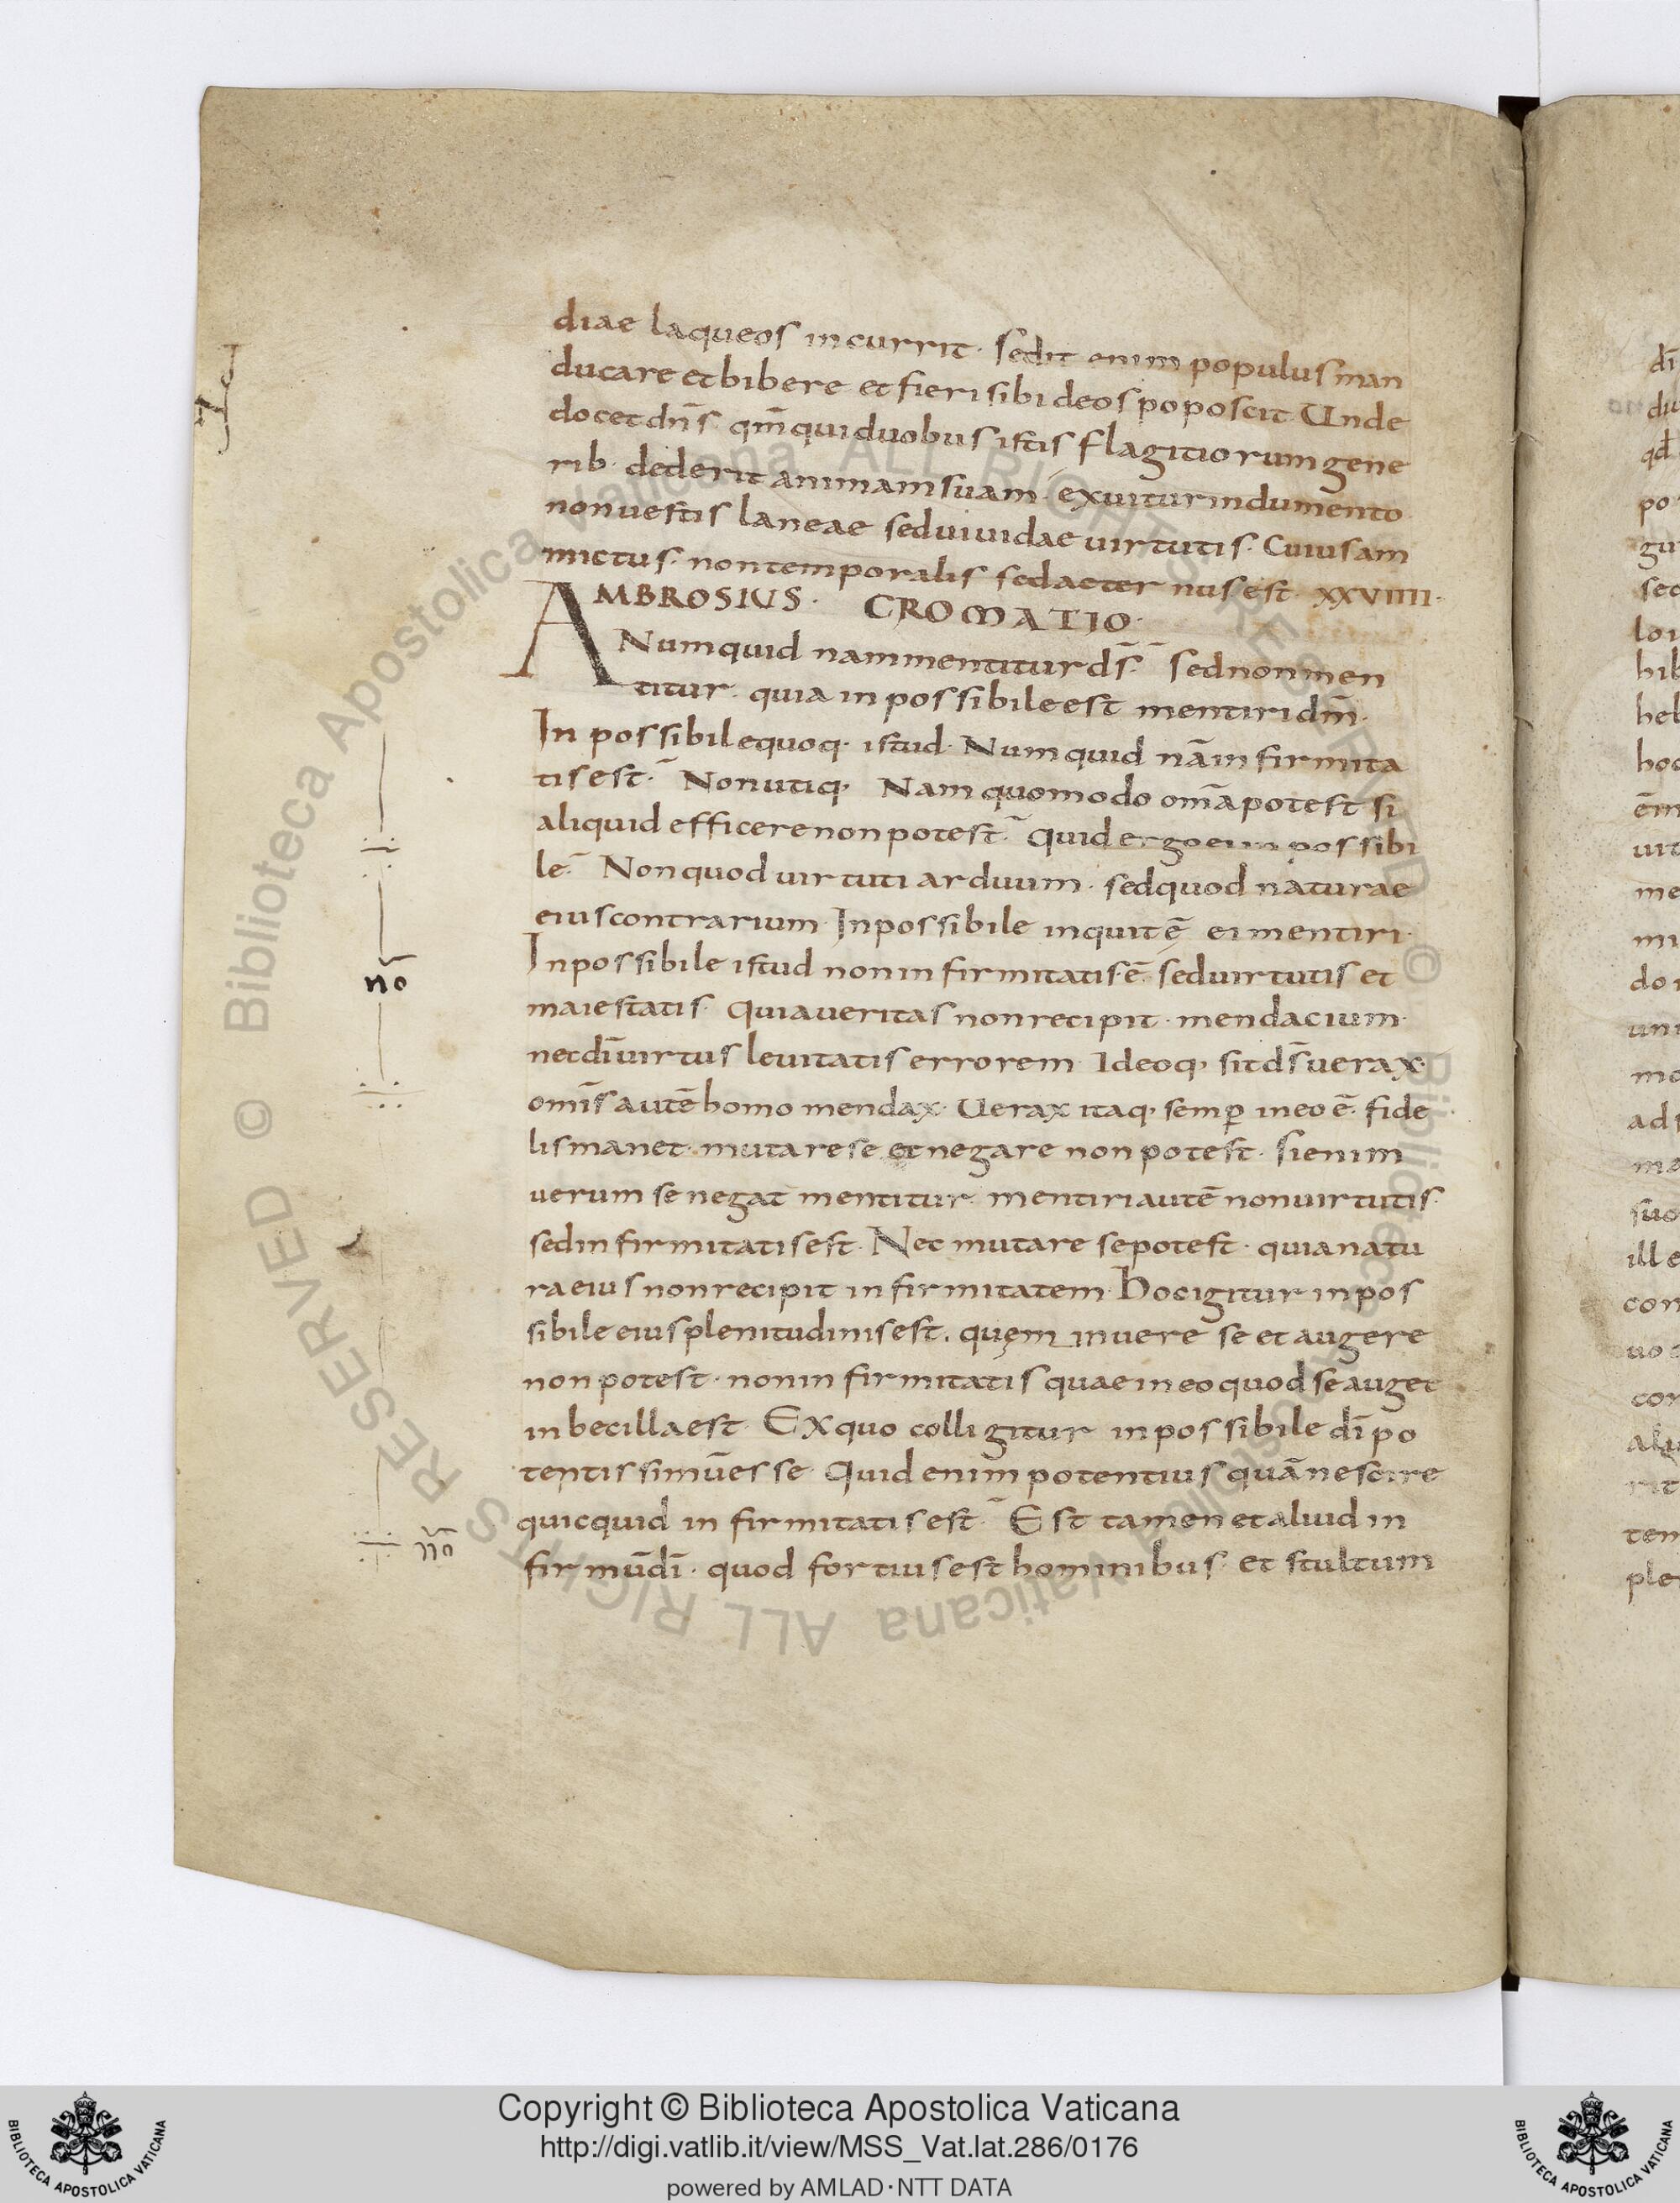 diae laqueos incurrit· sedit enim populus man
ducare et bibere et fieri sibi deos poposcit· Unde
docet dn̄s qm̄ qui duobus istis flagitiorum gene
rib· dederit animam suam· exuitur indumento
non uestis laneae sed uiuidae uirtutis· Cuius am
mictus· non temporalis sed aeternus est· XXVIIII·
AMBROSIUS· CROMATIO·
Numquid nam mentitur ds̄· Sed non men
titur· quia inpossibile est mentiri dm̄·
Inpossibile quoq· istud· Numquid nā infirmita
tis est· Non utiq· Nam quomodo om̄a potest si
aliquid efficere non potest· Quid ergo ei inpossibi
le· Non quod uirtuti arduum· sed quod naturae
eius contrarium· Inpossibile inquit ē ei mentiri·
Inpossibile istud non infirmitatis ē sed uirtutis et
maiestatis· Quia ueritas non recipit· mendacium·
nec dī uirtus leuitatis errorem· Ideoq· sit ds̄ uerax·
omīs autē homo mendax· Uerax itaq· semꝑ in eo ē· fide
lis manet· mutare se et negare non potest· si enim
uerum se negat mentitur· mentiri autē non uirtutis·
sed infirmitatis est· Nec mutare se potest· quia natu
ra eius non recipit infirmitatem· Hoc igitur inpos
sibile eius plenitudinis est· quem inuere se et augere
non potest· non infirmitatis quae in eo quod se auget
inbecilla est· Ex quo colligitur inpossibile dī po
tentissimū esse· Quid enim potentius quā nescire
quicquid infirmitatis est· Est tamen et aliud in
firmū dī· quod fortius est hominibus· et stultum
nō
nō
dī
du
qd
po
gu
sed
loi
bib
hel
hoc
ēm
uit
me
mi
do
uni
mo
ad
ma
suo
ille
con
uo
cor
rit
tem
ple
© Biblioteca Apostolica Vaticana ALL RIGHTS RESERVED © Biblioteca Apostolica Vaticana ALL RIGHTS RESERVED
BIBLIOTECA APOSTOLICA VATICANA
Copyright © Biblioteca Apostolica Vaticana
http://digi.vatlib.it/view/MSS_Vat.lat.286/0176
powered by AMLAD·NTT DATA
BIBLIOTECA APOSTOLICA VATICANA